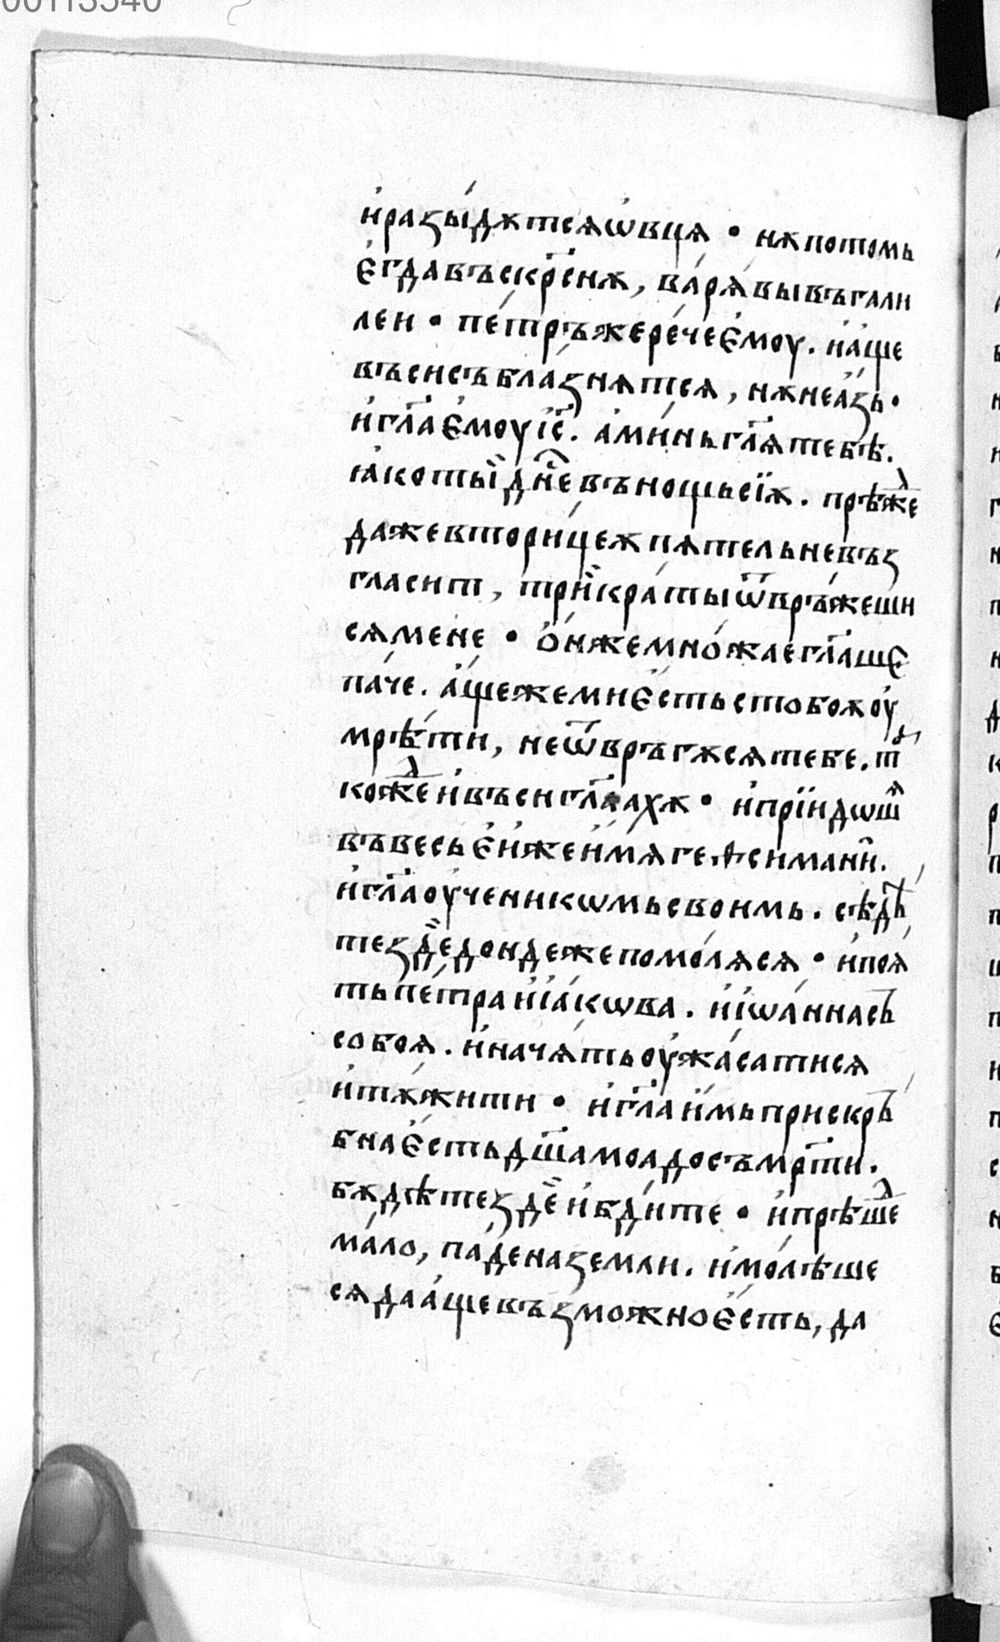 00113540
и҆разы́дѫтсѧѡ҆вцѧ • нѫпотомь
є҆гдавъскр҃снѫ, варѧ́ѧвывъгали
леи • пе́тръжере́чеє҆моу. и҆а҆́ще
въсисъблазнѧтсѧ, нѫнеа҆́зь•
и҆гл҃ає҆моуі҆с҃. а҆ми́ньгл҃ѧтебѣ.
ꙗ҆коты̀дн҃евънощьсїѫ. прѣжⷣе
дажевтори́цеѫпѧтельневъз
гласит, три̏кратыѿвръ́жеши
сѧмене • ѻ҆нжемно́жаегл҃аше
паче. а҆́щежемиє҆стьстобоѫоу҆
мрѣ́ти, неѿвръгѫсѧтебе. та
кожⷣеи҆въсигл҃аахѫ • и҆прїидошѧ
въвесьє҆ижеи҆́мѧгеѳсимани̑.
и҆гл҃аоу҆ченикѡмьсвоимь. сѣдѣ
тездѐдондежепомолѧсѧ • и҆поѧ
тьпе́траи҆і҆а҆́кѡва. и҆і҆ѡа́ннасъ
собоѧ. и҆начѧтьоу҆жа́сатисѧ
и҆тѫжити • и҆гл҃аи҆́мьприскръ
бнає҆стьдш҃амоадосъмр҃ти.
бѫдѣтездѐи҆бди́те • и҆прѣшⷣе
ма́ло, па́деназемли. и҆молѣше
сѧдаа҆́щевъзможноє҆сть, да